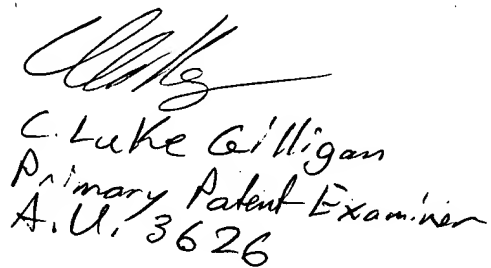 C. Luke Gilligan
Primary Patent Examiner
A.U. 3626